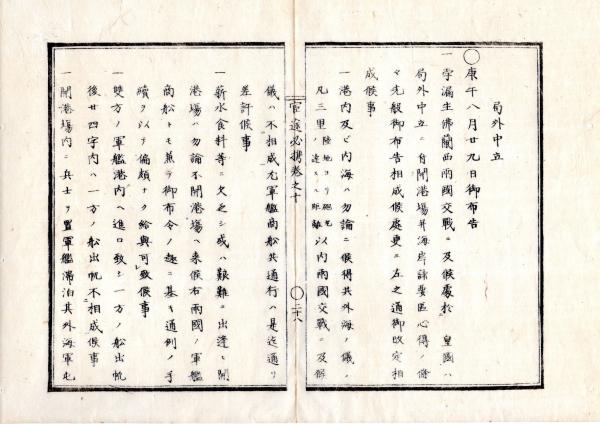 局外中立
〇庚午八月廿九日御布告
一孛漏生佛蘭西兩國交戰ニ及候處於 皇國ハ
局外中立ニ付開港場并海岸諸要區心得ノ條
々先般御布告相成候處更ニ左之通御改定相
成候事
一港內及ヒ內海ハ勿論ニ候得共外海ノ儀ハ
凡三里陸地ヨリ砲丸ノ達スル距離以內兩國交戰ニ及候
官途必携卷之十
〇二十八
儀ハ不相成尤軍艦商船共通行ハ是迄通リ
差許候事
一薪水食料等ニ欠乏シ或ハ艱難ニ出逢ヒ開
港場ハ勿論不開港場ヘ来候右兩國ノ軍艦
商船トモ兼テ御布令ノ趣ニ基キ通例ノ手
續ヲ以テ偏頗ナク給與可致候事
一雙方ノ軍艦港內ヘ進口致シ一方ノ船出帆
後廿四字內ハ一方ノ船出帆不相成候事
一開港場內ニ兵士ヲ置軍艦滯泊其外海軍屯